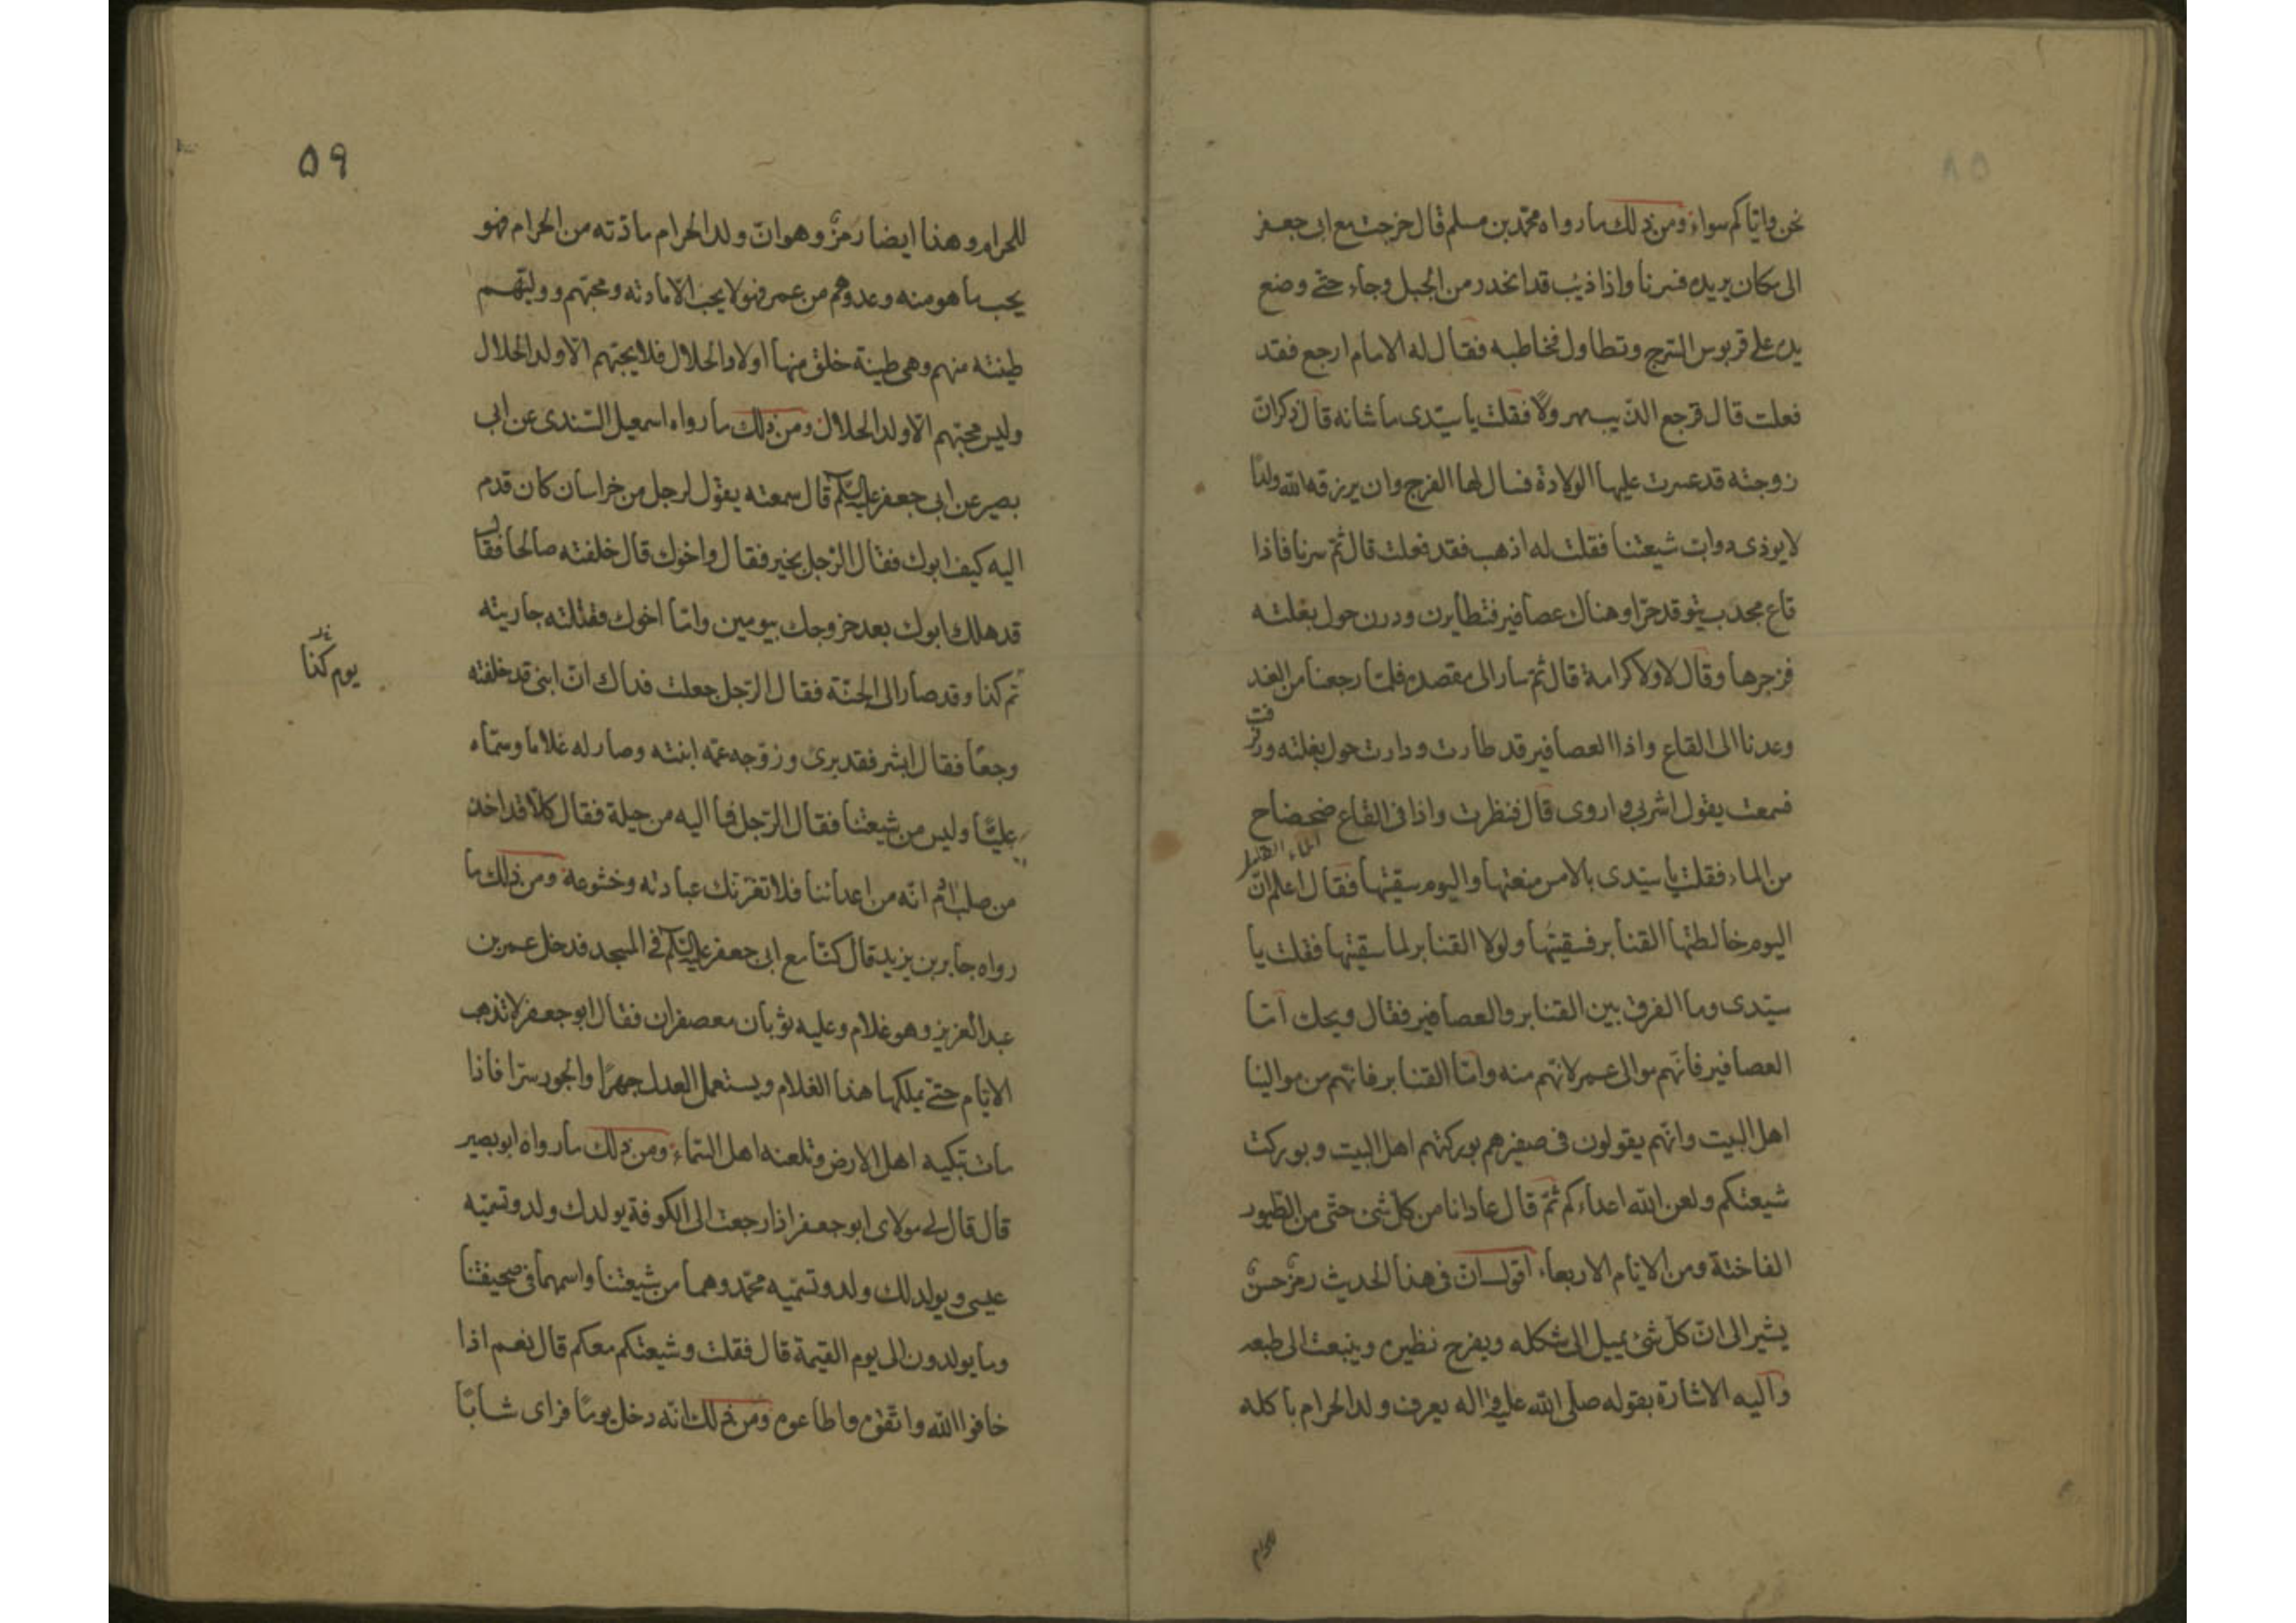 نحن واياكم سواء ومن ذلك ما رواه محمد بن مسلم قال خرجت مع ابى جعفر
الى مكان يريده فسرنا واذا ذئب قد انحدر من الجبل وجاء حتى وضع
يده على قربوس السرج وتطاول فخاطبه فقال له الامام ارجع فقد
فعلت قال فرجع الذئب يهرول فقلت يا سيدى ما شانه قال ذكر ان
زوجته قد عسرت عليها الولادة فسال لها الفرج وان يرزقه الله ولدا
لا يوذى دواب شيعتنا فقلت له اذهب فقد فعلت قال ثم سرنا فاذا
قاع مجدب يتوقد حرا وهناك عصافير فتطايرن ودرن حول بغلته
فزجرها وقال لا ولا كرامة قال ثم سار الى مقصده فلما رجعنا من الغد
وعدنا الى القاع واذا العصافير قد طارت ودارت حول بغلته ورفرفت
فسمعت يقول اشربى واروى قال فنظرت واذا فى القاع ضحضاح
من الماء فقلت يا سيدى بالامس منعتها واليوم سقيتها فقال اعلم ان
اليوم خالطتها القنابر فسقيتها ولولا القنابر لما سقيتها فقلت يا
سيدى وما الفرق بين القنابر والعصافير فقال ويحك اما
العصافير فانهم موالى عمر لانهم منه واما القنابر فانهم من موالينا
اهل البيت وانهم يقولون فى صفيرهم بوركتهم اهل البيت وبوركت
شيعتكم ولعن الله اعداءكم ثم قال عادانا من كل شئ حتى من الطيور
الفاختة ومن الايام الاربعاء اقول ان فى هذا الحديث رمز حسن
يشير الى ان كل شئ يميل الى شكله ويفرح نظيره وينبعث الى طبعه
واليه الاشارة بقوله صلى الله عليه واله يعرف ولد الحرام باكله
للحرام
٥٩
للحرام وهذا ايضا رمز وهو ان ولد الحرام مادته من الحرام فهو
يحب ما هو منه وعدوهم من عمر فهو لا يحب الا مادته ومحبهم ووليهم
طينته منهم وهى طينة خلق منها اولاد الحلال فلا يحبهم الا ولد الحلال
وليس محبهم الا ولد الحلال ومن ذلك ما رواه اسمعيل السندى عن ابى
بصير عن ابى جعفر عليه السلام قال سمعته يقول لرجل من خراسان كان قدم
اليه كيف ابوك فقال الرجل بخير فقال واخوك قال خلفته صالحا فقال
قد هلك ابوك بعد خروجك بيومين واما اخوك فقتلته جاريته
ثم كذا وقد صار الى الجنة فقال الرجل جعلت فداك ان ابنى قد خلفته
يوم كذا
وجعا فقال ابشر فقد برئ وزوجه عمه ابنته وصار له غلاما وسماه
عليا وليس من شيعتنا فقال الرجل فما اليه من حيلة فقال كلا قد اخذ
من صلب ادم انه من اعدائنا فلا تغرنك عبادته وخشوعه ومن ذلك ما
رواه جابر بن يزيد قال كنا مع ابى جعفر عليه السلام فى المسجد فدخل عمر بن
عبد العزيز وهو غلام وعليه ثوبان معصفران فقال ابو جعفر لا تذهب
الايام حتى يملكها هذا الغلام ويستعمل العدل جهرا والجور سرا فاذا
مات تبكيه اهل الارض وتلعنه اهل السماء ومن ذلك ما رواه ابو بصير
قال قال لى مولاى ابو جعفر اذا رجعت الى الكوفة يولد لك ولد وتسميه
عيسى ويولد لك ولد وتسميه محمد وهما من شيعتنا واسمهما فى صحيفتنا
وما يولدون الى يوم القيمة قال فقلت وشيعتكم معكم قال نعم اذا
خافوا الله واتقوه واطاعوه ومن ذلك انه دخل يوما فراى شابا